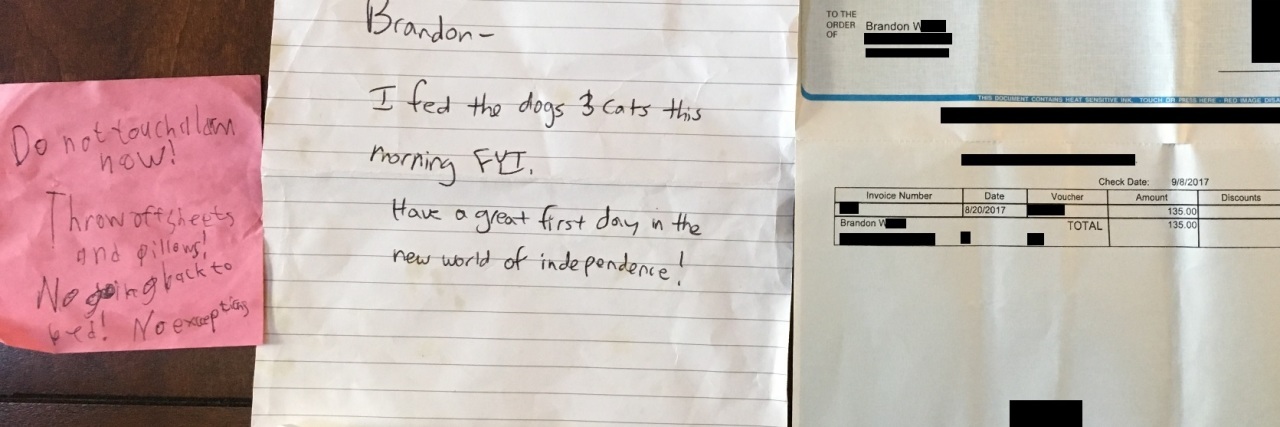 Do not touch alarm
now!
Throw off sheets
and pillows!
No going back to
bed! No exceptions
Brandon-
I fed the dogs & cats this
morning FYI.
Have a great first day in the
new world of independence!
TO THE
ORDER
OF
Brandon W
THIS DOCUMENT CONTAINS HEAT SENSITIVE INK. TOUCH OR PRESS HERE - RED IMAGE DISA
Check Date: 9/8/2017
Invoice Number Date Voucher Amount Discounts
8/20/2017 135.00
Brandon W TOTAL 135.00